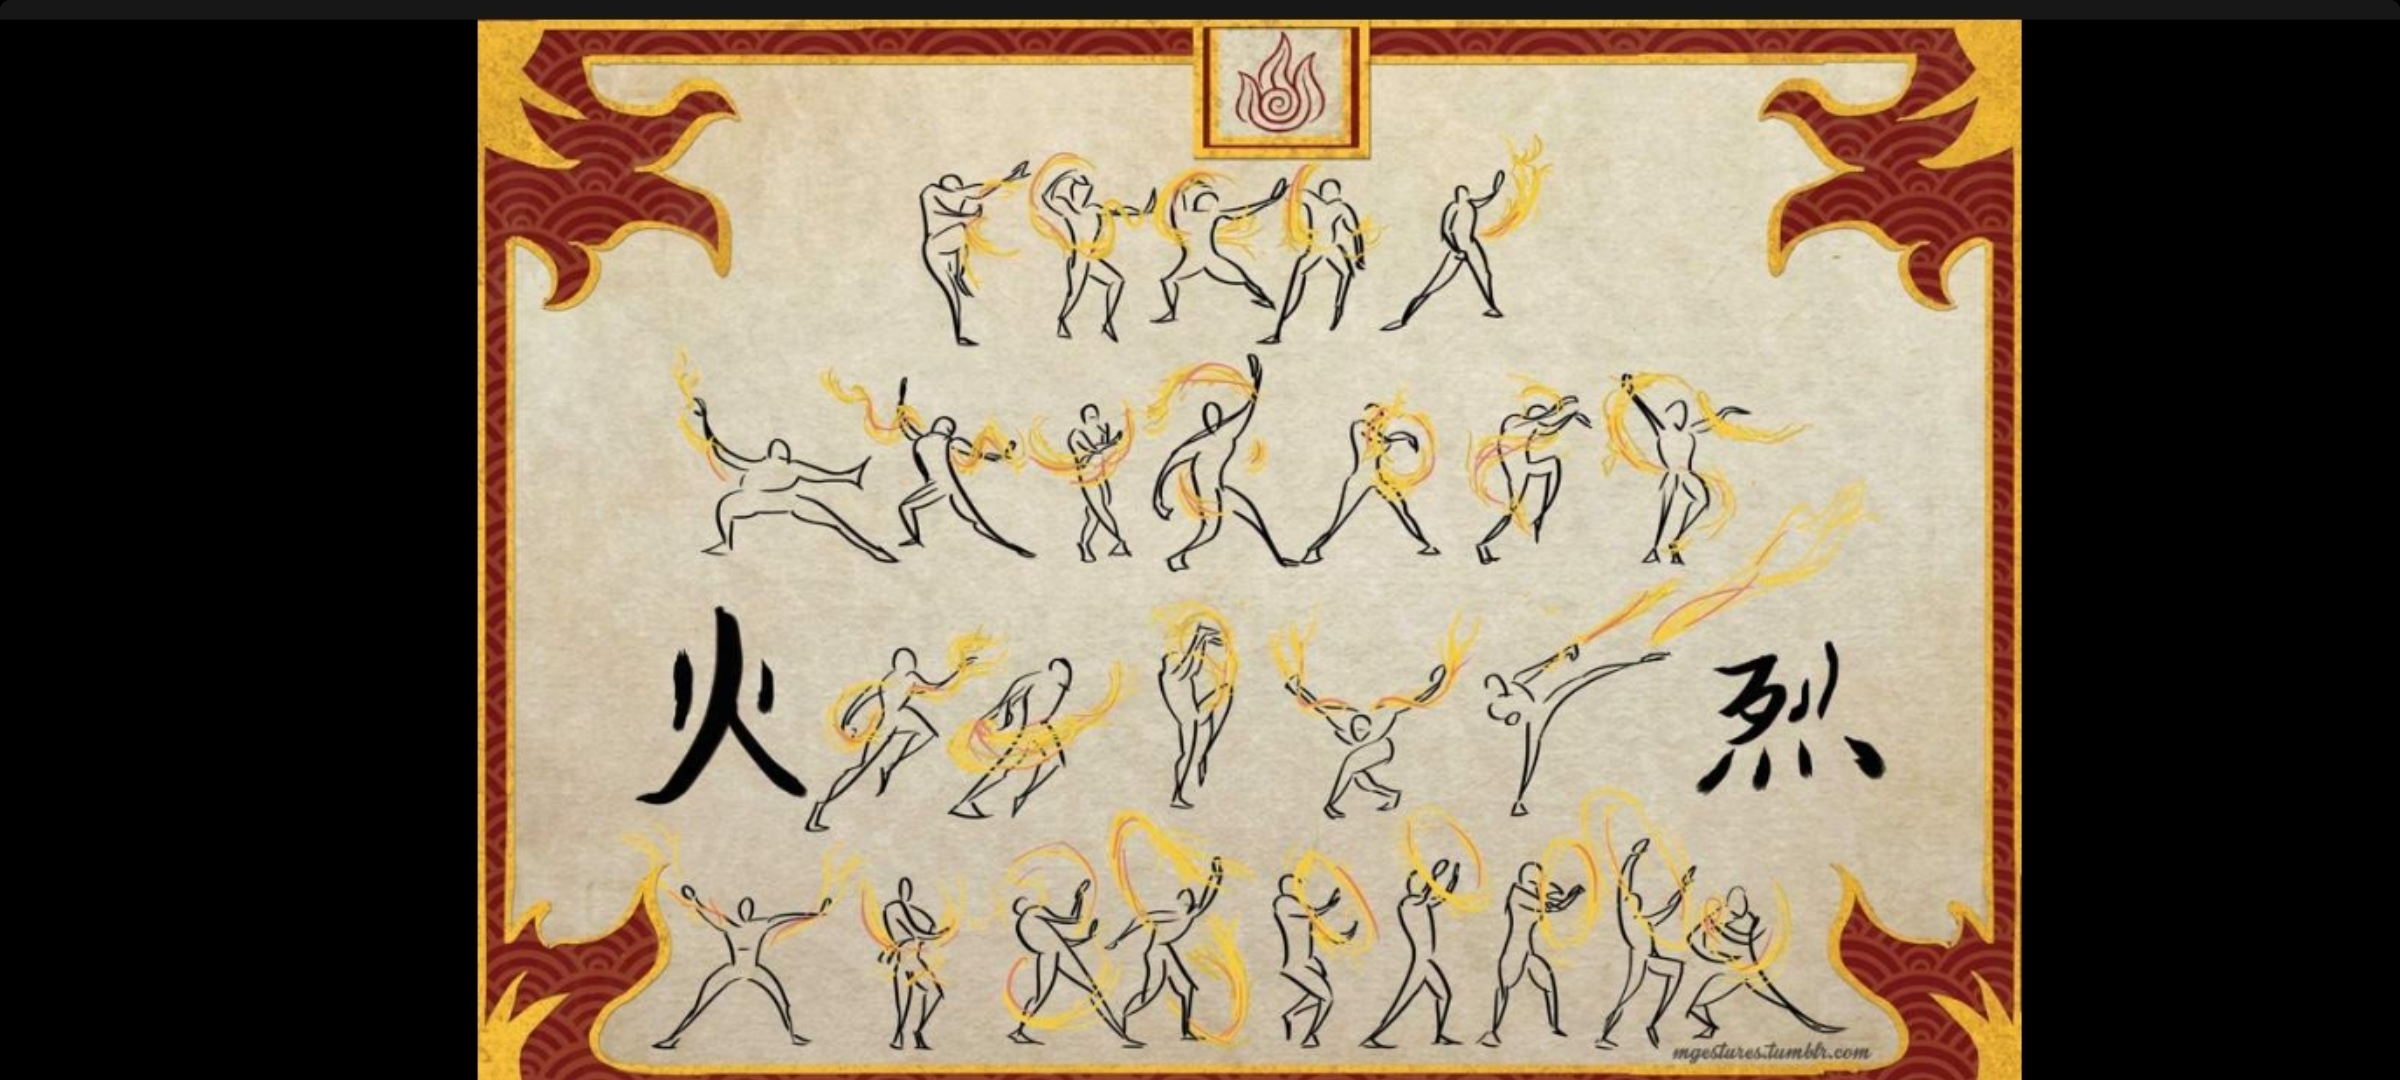 火
烈
mgestures.tumblr.com